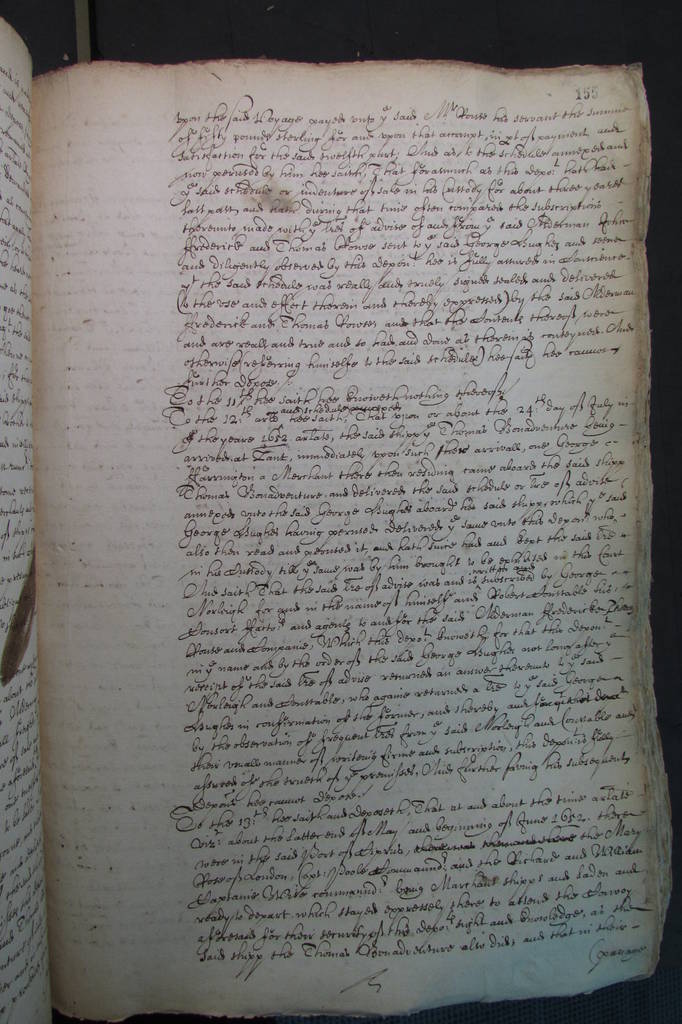 155
upon the said Voyage payed unto ye said Mr Rouse his servant the summe
of fifty pounds sterling for and upon that accompt, in pt of payment and
satisfaction for the said twelfth part, And as to the schedule annexed and
now perused by him hee saith, That forasmuch as this depot hath had
ye said schedule or indenture of sale in his Custody for about three yeares
last past, and hath during that time often compared the subscriptions
thereunto made with ye lres of advise of and from ye said Alderman John
Frederick and Thomas Rowse sent to ye said George Hughes and seene
and diligently observed by this depont hee is fully assured in Conscience
yt the said schedule was really and truely signed sealed and delivered
(to the use and effect therein and thereby expressed) by the said Alderman
Frederick and Thomas Rowse and that the Contents thereof were
and are reall and true and so had and done as therein is conteyned. And
otherwise (referring himselfe to the said schedule) hee saith hee cannot
further depose.
To the 11th hee saith hee knoweth nothing thereof
To the 12th arle and schedule hee saith, That upon or about the 24th day of July in
ye yeare 1652 arlate, the said shipp ye Thomas Bonadventure being
arrived at Zant, immediately upon such their arrivall, one George
Harrington a Merchant there then residing came aboard the said shipp
Thomas Bonadventure and delivered the said schedule or lre of advise
annexed unto the said George Hughes aboard his said shipp, which ye said
George Hughes having perused delivered ye same unto this depont who
also then read and perused it, and hath since had and kept the said lre
in his Custody till ye same was by him brought to be exhibited in this Court
And saith That the said lre of advise was and is written and subscribed by George
Morleigh for and in the name of himselfe and Robert Constable his
Consort factors and agents to and for the said Alderman Frederick
Rouse and Companie, Which this depot knoweth for that the depont
in ye name and by the order of the said George Hughes not long after ye
receipt of the said lre of advise returned an answer thereunto to ye said
Morleigh and Constable, who againe returned a lre to ye said George
Hughes in confirmation of the former, and thereby and
by the observation of frequent lres from ye said Morleigh and Constable and
their usuall manner of writeing firme and subscription, this deponent is fully
assured of the trueth of ye premisses, And further saving his subsequent
deposn hee cannot depose.
To the 13th hee saith and deposeth, That at and about the time arlate
vizt about the latter end of May and beginning of June 1652. there
were in the said Port of Cyprus, the Mary
Rose of London, Capt: Poole Commaundr and the Richard and William
Captaine Wise commandr being Marchant shipps and laden and
ready to depart which stayed expressely there to attend the Convoy
aforesaid for their security of this depots sight and knowledge, as the
said shipp the Thomas Bonadventure also did, and that in their
passage